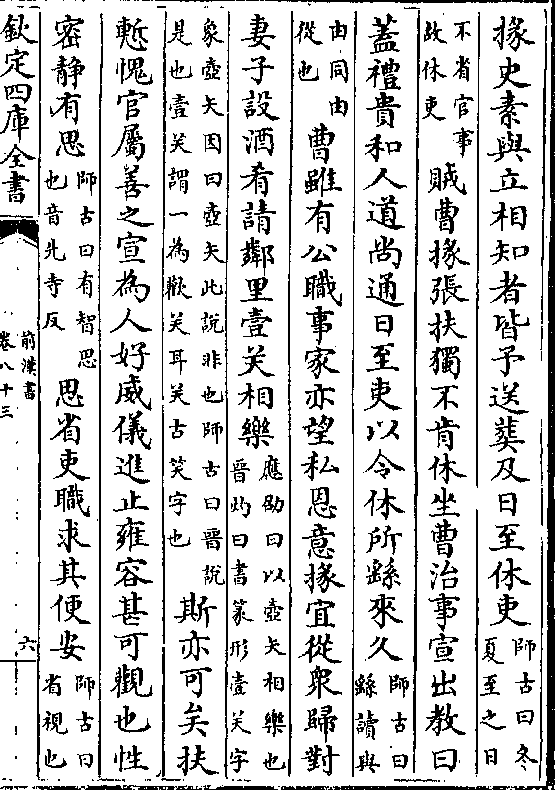 掾史素與立相知者皆予送葬及日至休吏師古曰冬夏至之日
不省官事故休吏賊曹掾張扶獨不肯休坐曹治事宣出教曰
蓋禮貴和人道尚通日至吏以令休所繇來久師古曰繇讀與
由同由從也曹雖有公職事家亦望私恩意掾宜從衆歸對
妻子設酒肴請鄰里壹关相樂應劭曰以壺矢相樂也晉灼曰書篆形壹关字
象壺矢因曰壺矢此說非也師古曰晉說是也壹关謂一為歡关耳关古笑字也斯亦可矣扶
慙愧官屬善之宣為人好威儀進止雍容甚可觀也性
密静有思師古曰有智思也音先寺反思省吏職求其便安師古曰省視也
欽定四庫全書
前漢書
卷八十三
六